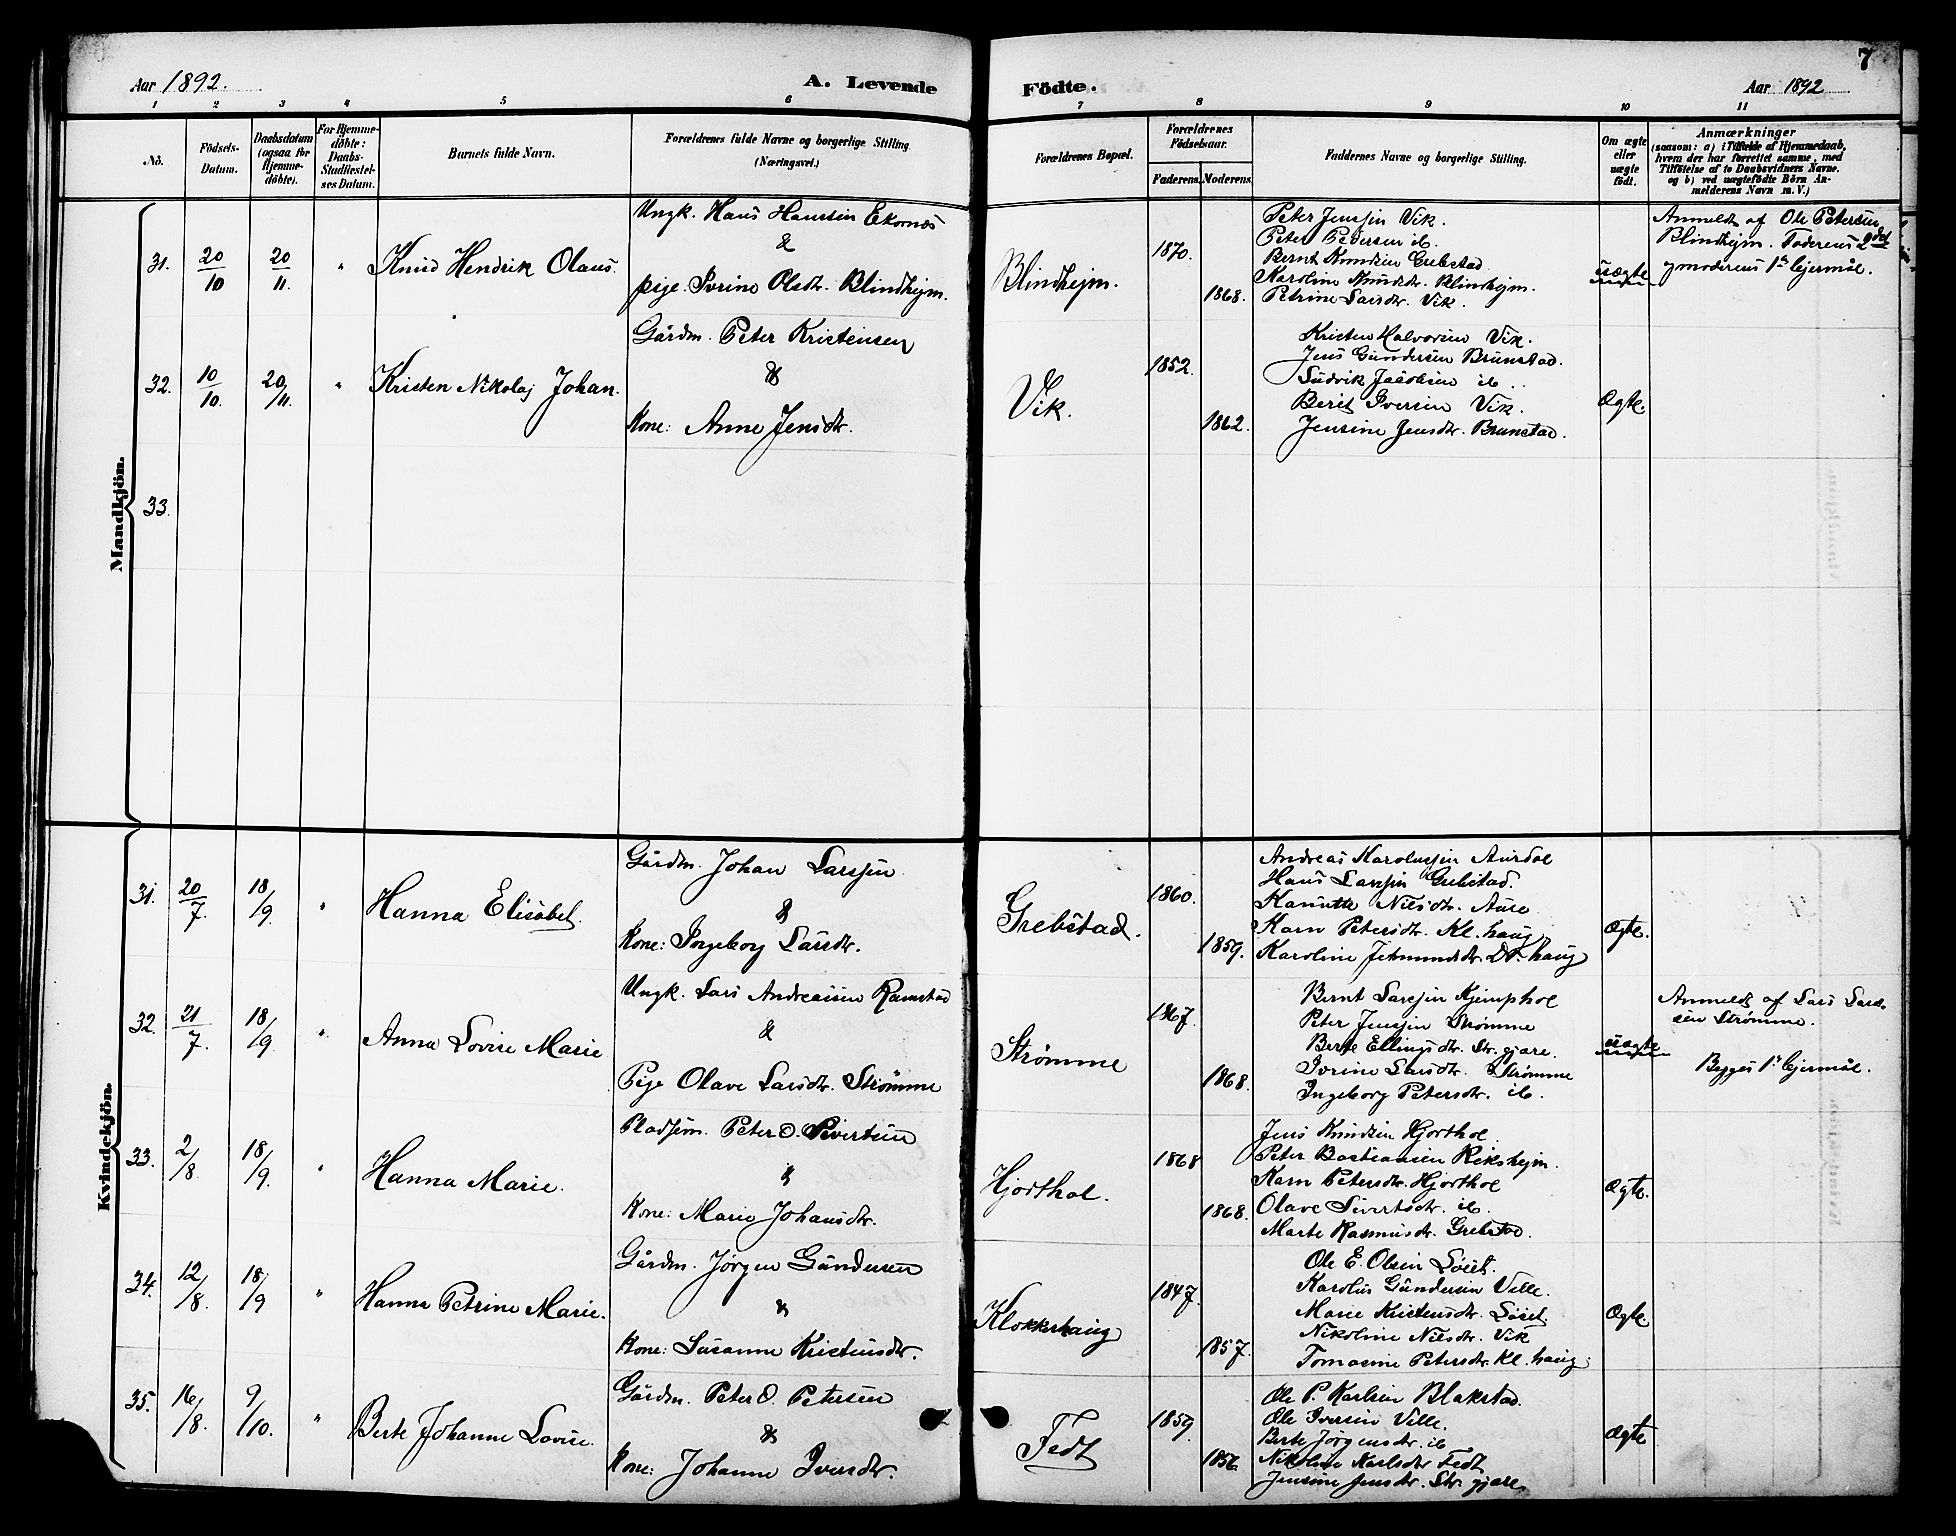 7
Aar 1892.
A. Levende
Födte.
Aar 1892
1 2 3 4 5 6 7 8 9 10 11
No.
Födsels-Datum.
Daabsdatum (ogsaa for Hjemme-döbte).
For Hjemme-döbte: Daabs-Stadfæstel-ses Datum.
Barnets fulde Navn.
Forældrenes fulde Navne og borgerlige Stilling.
(Næringsvei.)
Forældrenes Bopæl.
Forældrenes Födselsaar.
Faderens. Moderens.
Faddernes Navne og borgerlige Stilling.
Om ægte eller uægte födt.
Anmærkninger
(saasom: a) i Tilfælde af Hjemmedaab,
hvem der har forrettet samme, med
Tilföielse af to Daabsvidners Navne.
og b) ved uægtefödte Börn An-
melderens Navn m. V.)
Mandkjön.
31. 20/10 20/11. " Knud Hendrik Olaus.
Ungk. Hans Hansen Ekornæs
&
pige Ivrine Olsdtr. Blindhejm.
Blindhejm.
1870.
1868.
Peter Jenssen Vik.
Peter Pedersen ib.
Bernt Knudsen Grebstad
Karoline Knudsdtr. Blindhejm.
Petrine Larsdtr. Vik.
uægte
Anmeldt af Ole Petersen
Blindhejm. Faderens 2det
og moderens 1ste lejermål.
32. 10/10. 20/11. " Kristen Nikolaj Johan.
Gårdm. Peter Kristensen
&
Kone: Anne Jensdtr.
Vik.
1852.
1862.
Kristen Halvorsen Vik.
Jens Gundersen Brunstad.
Ludvik Jacobsen ib.
Berit Iversen Vik.
Jensine Jensdtr. Brunstad.
Ægte.
33.
Kvindekjön.
31. 20/7. 18/9. " Hanna Elisabet.
Gårdm. Johan Larssen
&
Kone: Ingeborg Larsdtr.
Grebstad.
1860.
1859.
Andreas Karolussen Aurdal
Hans Larssen Grebstad.
Hansette Nilsdtr. Aure
Karn Petersdtr. Kl. haug
Karoline Jetmundsdtr. Do. haug
Ægte.
32. 21/7. 18/9. " Anna Lovise Marie
Ungk. Lars Andreassen Ramstad
&
Pige Olave Larsdtr. Strømme
Strømme
1867.
1868.
Bernt Larssen Kjemphol
Peter Jenssen Strømme
Berte Ellingsdtr. Str. gjære.
Ivrine Larsdtr. Strømme
Ingeborg Petersdtr. ib.
uægte
Anmeldt af Lars Lars-
sen Strømme.
Begges 1ste lejermål.
33. 2/8. 18/9. " Hanna Marie.
Pladsem. Peter O. Sivertsen
&
Kone: Marie Johansdtr.
Hjorthol.
1868
1868.
Jens Knudsen Hjorthol
Peter Bastiansen Rikshejm.
Karn Petersdtr. Hjorthol
Olave Sivertsdtr. ib.
Marte Rasmusdtr. Grebstad.
Ægte.
34. 12/8. 18/9 " Hanna Petrine Marie.
Gårdm. Jørgen Gundersen
&
Kone: Susanne Kristensdtr.
Klokkerhaug
1847.
1857.
Ole E. Olsen Løset.
Karolus Gundersen Velle.
Marie Kristensdtr. Løset.
Nikoline Nilsdtr. Vik
Tomasine Petersdtr. Kl. haug.
Ægte.
35. 16/8. 9/10. " Berte Johanne Lovise.
Gårdm. Peter O. Petersen
&
Kone: Johanne Iversdtr.
Fedt
1859
1856
Ole P. Karlsen Blakstad.
Ole Iversen Velle.
Berte Jørgensdtr. ib
Nikoline Karlsdtr Fedt
Jensine Jensdtr. Str. gjære
Ægte